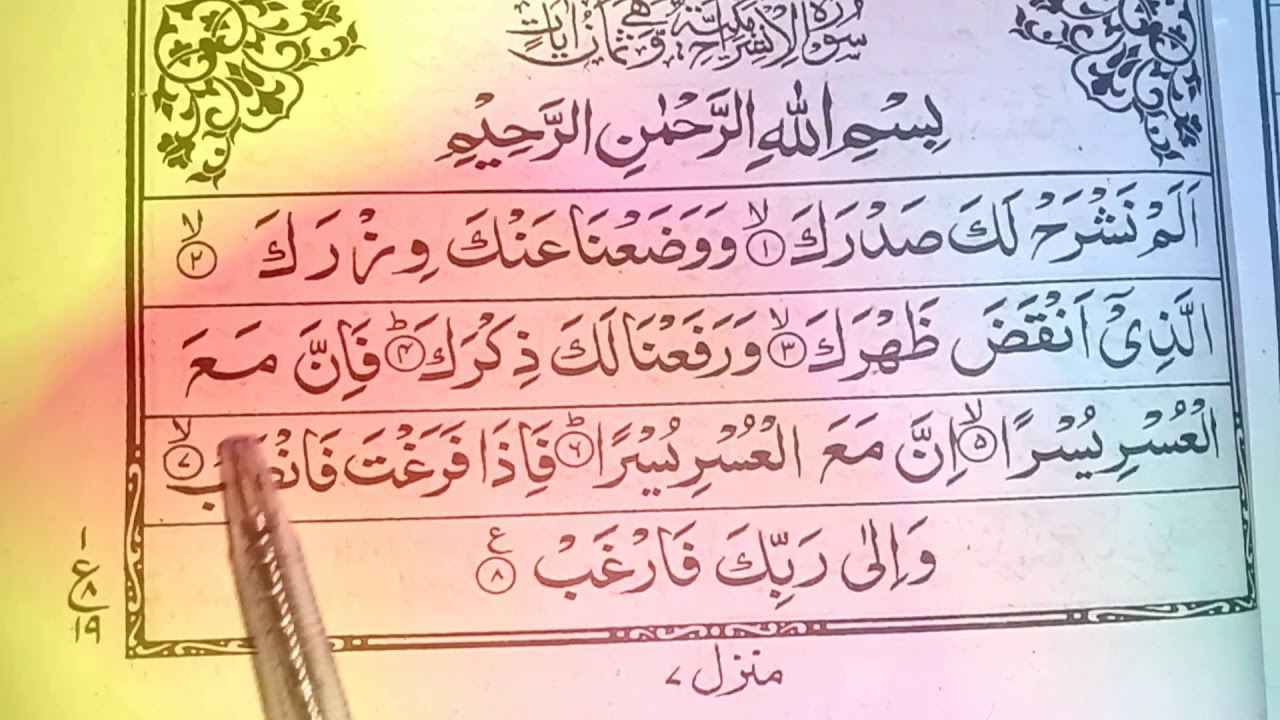 سُوْرَةُ الْاِنْشِرَاحِ مَكِّيَّةٌ وَّهِيَ ثَمَانُ اٰيَاتٍ
بِسْمِ اللّٰهِ الرَّحْمٰنِ الرَّحِيْمِ
اَلَمْ نَشْرَحْ لَكَ صَدْرَكَ ﴿۱﴾ۙ وَوَضَعْنَا عَنْكَ وِزْرَكَ ﴿۲﴾ۙ
الَّذِىْۤ اَنْقَضَ ظَهْرَكَ ﴿۳﴾ۙ وَرَفَعْنَا لَكَ ذِكْرَكَ ﴿۴﴾ؕ فَاِنَّ مَعَ
الْعُسْرِ يُسْرًا ﴿۵﴾ۙ اِنَّ مَعَ الْعُسْرِ يُسْرًا ﴿۶﴾ؕ فَاِذَا فَرَغْتَ فَانْصَبْ ﴿۷﴾ۙ
وَاِلٰى رَبِّكَ فَارْغَبْ ﴿۸﴾ ع
۱
ع
۸
۱۹
منزل ۷